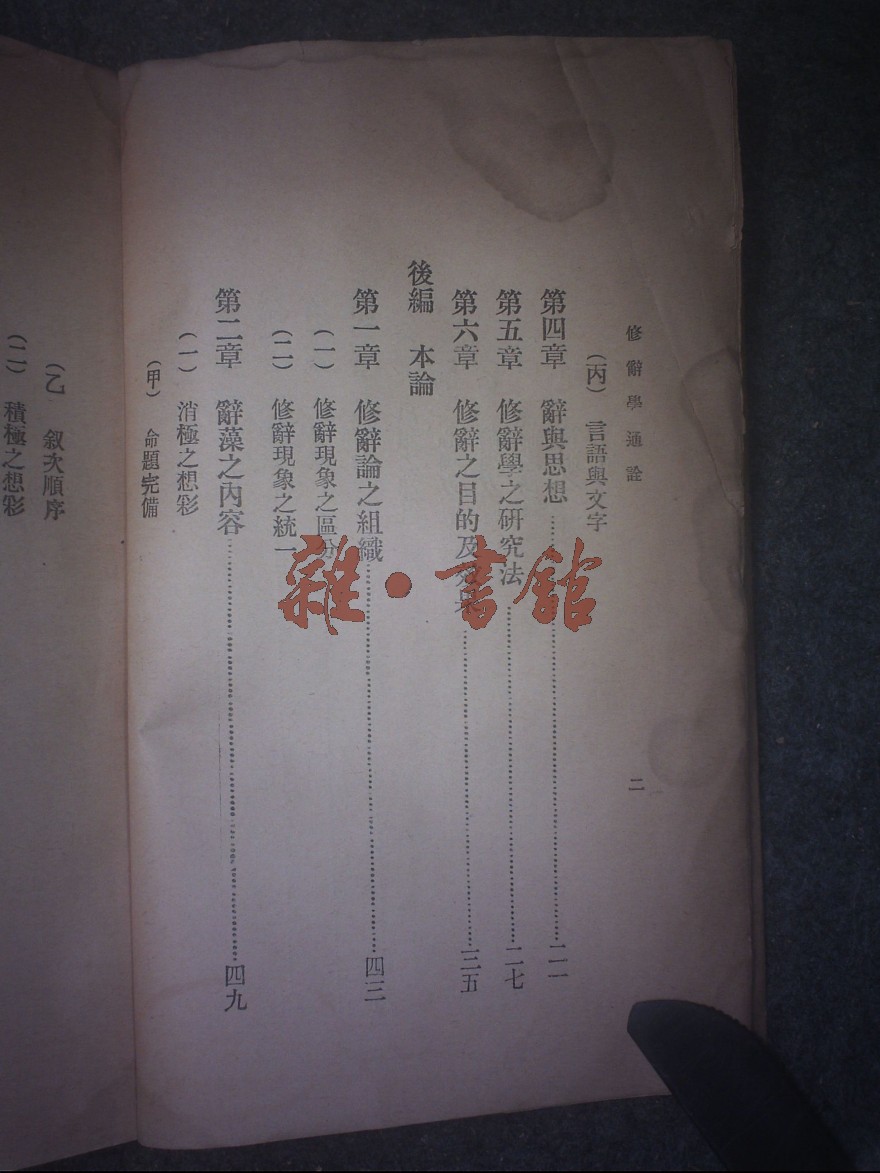 修辭學通詮
二
(丙) 言語與文字
第四章 辭與思想……二一
第五章 修辭學之研究法……二七
第六章 修辭之目的及效果……三五
後編 本論
第一章 修辭論之組織……四三
(一) 修辭現象之區分
(二) 修辭現象之統一
第二章 辭藻之內容……四九
(一) 消極之想彩
(甲) 命題完備
(乙 叙次順序
(二) 積極之想彩
雜·書館